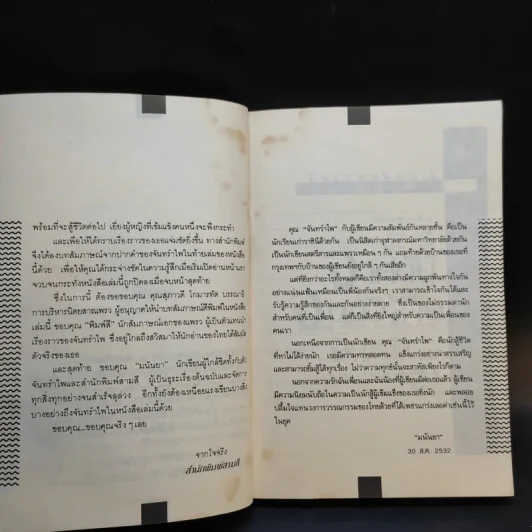 พร้อมที่จะสู้ชีวิตต่อไป เยี่ยงผู้หญิงที่เข้มแข็งคนหนึ่งจะพึงกระทำ
และเพื่อให้ได้ทราบเรื่องราวของเธอแจ่มชัดยิ่งขึ้น ทางสำนักพิมพ์
จึงได้ลงบทสัมภาษณ์จากปากคำของจันทร์รำไพในท้ายเล่มของหนังสือ
นี้ด้วย เพื่อให้คุณได้กระจ่างชัดในความรู้สึกเมื่อเริ่มเปิดอ่านหน้าแรก
จวบจนกระทั่งหนังสือเล่มนี้ถูกปิดลงเมื่อจบหน้าสุดท้าย
ซึ่งในการนี้ ต้องขอขอบคุณ คุณสุภาวดี โกมารทัต บรรณาธิ
การบริหารนิตยสารแพรว ผู้อนุญาตให้นำบทสัมภาษณ์ตีพิมพ์ในหนังสือ
เล่มนี้ ขอบคุณ "พิมพ์สี" นักสัมภาษณ์เอกของแพรว ผู้เป็นตัวแทนนำ
เรื่องราวของจันทร์รำไพ ซึ่งอยู่ไกลถึงสวีสมาให้นักอ่านของไทยได้สัมผัส
ตัวจริงของเธอ
และสุดท้าย ขอบคุณ "มนันยา" นักเขียนผู้ใกล้ชิดทั้งกับตัว
จันทร์รำไพและสำนักพิมพ์สามสี ผู้เป็นธุระเรื่องต้นฉบับและจัดการ
ทุกสิ่งทุกอย่างจนสำเร็จลุล่วง อีกทั้งยังต้องเหนื่อยแรงเขียนบางสิ่ง
บางอย่างถึงจันทร์รำไพในหนังสือเล่มนี้ด้วย
ขอบคุณ...ขอบคุณจริง ๆ เลย
จากใจจริง
สำนักพิมพ์สามสี
คุณ "จันทร์รำไพ" กับผู้เขียนมีความสัมพันธ์กันหลายชั้น คือเป็น
นักเรียนเก่าราชินีด้วยกัน เป็นนิสิตเก่าจุฬาลงกรณ์มหาวิทยาลัยด้วยกัน
เป็นนักเขียนสตรีสารและแพรวเหมือน ๆ กัน แถมท้ายด้วยบ้านของเธอที่
กรุงเทพฯกับบ้านของผู้เขียนยังอยู่ใกล้ ๆ กันเสียอีก
แต่ที่ยิ่งกว่าอะไรทั้งหมดก็คือเราทั้งสองต่างมีความผูกพันทางใจกัน
อย่างแน่นแฟ้นเหมือนเป็นพี่น้องกันจริงๆ เราสามารถเข้าใจกันได้และ
รับรู้ความรู้สึกของกันและกันอย่างง่ายดาย ซึ่งเป็นของไม่ธรรมดานัก
สำหรับคนที่เป็นเพื่อน แต่ก็เป็นสิ่งที่ยิ่งใหญ่สำหรับความเป็นเพื่อนของ
คนเรา
นอกเหนือจากการเป็นนักเขียน คุณ "จันทร์รำไพ" คือนักสู้ชีวิต
ที่หาไม่ได้ง่ายนัก เธอมีความทรหดอดทน แข็งแกร่งอย่างน่าสรรเสริญ
และสามารถยิ้มสู้ได้ทุกเรื่อง ไม่ว่าความทุกข์นั้นจะสาหัสเพียงไรก็ตาม
นอกจากความรักฉันเพื่อนและฉันน้องที่ผู้เขียนมีต่อเธอแล้ว ผู้เขียน
มีความนิยมนับถือในความเป็นนักสู้ผู้เข้มแข็งของเธอยิ่งนัก และพลอย
ปลื้มใจแทนวงการวรรณกรรมของไทยด้วยที่ได้เพชรแกร่งเลอค่าเช่นนี้ไว้
ในยุค
"มนันยา"
30 ส.ค. 2532